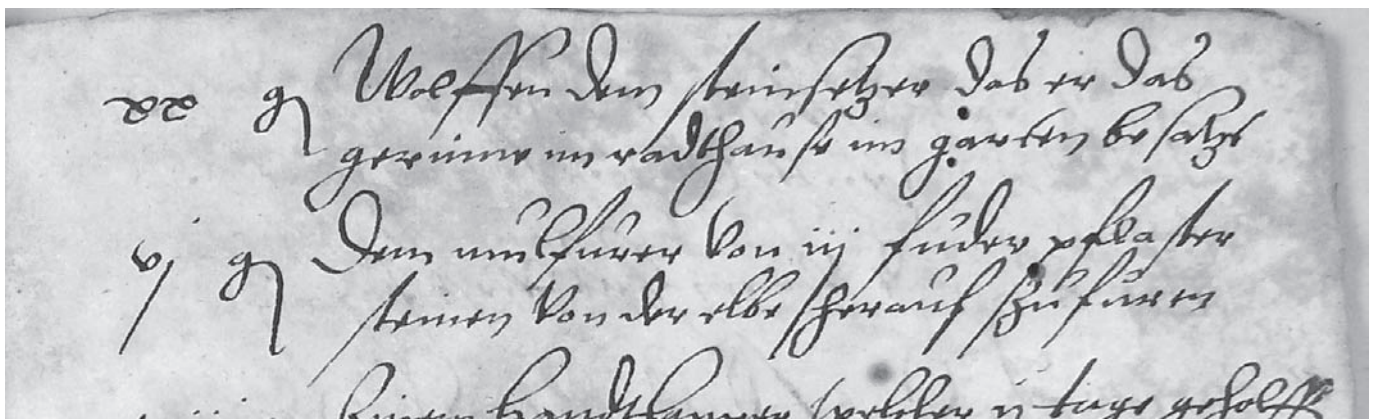 xx g Wolffen dem steinsetzer das er das
gerinne im radthause im garten besatzt
vj g Dem mulfurer von iij fuder pflaster
steinen von der elbe herauf zufuren
einem handtlanger welcher ij tage geholff